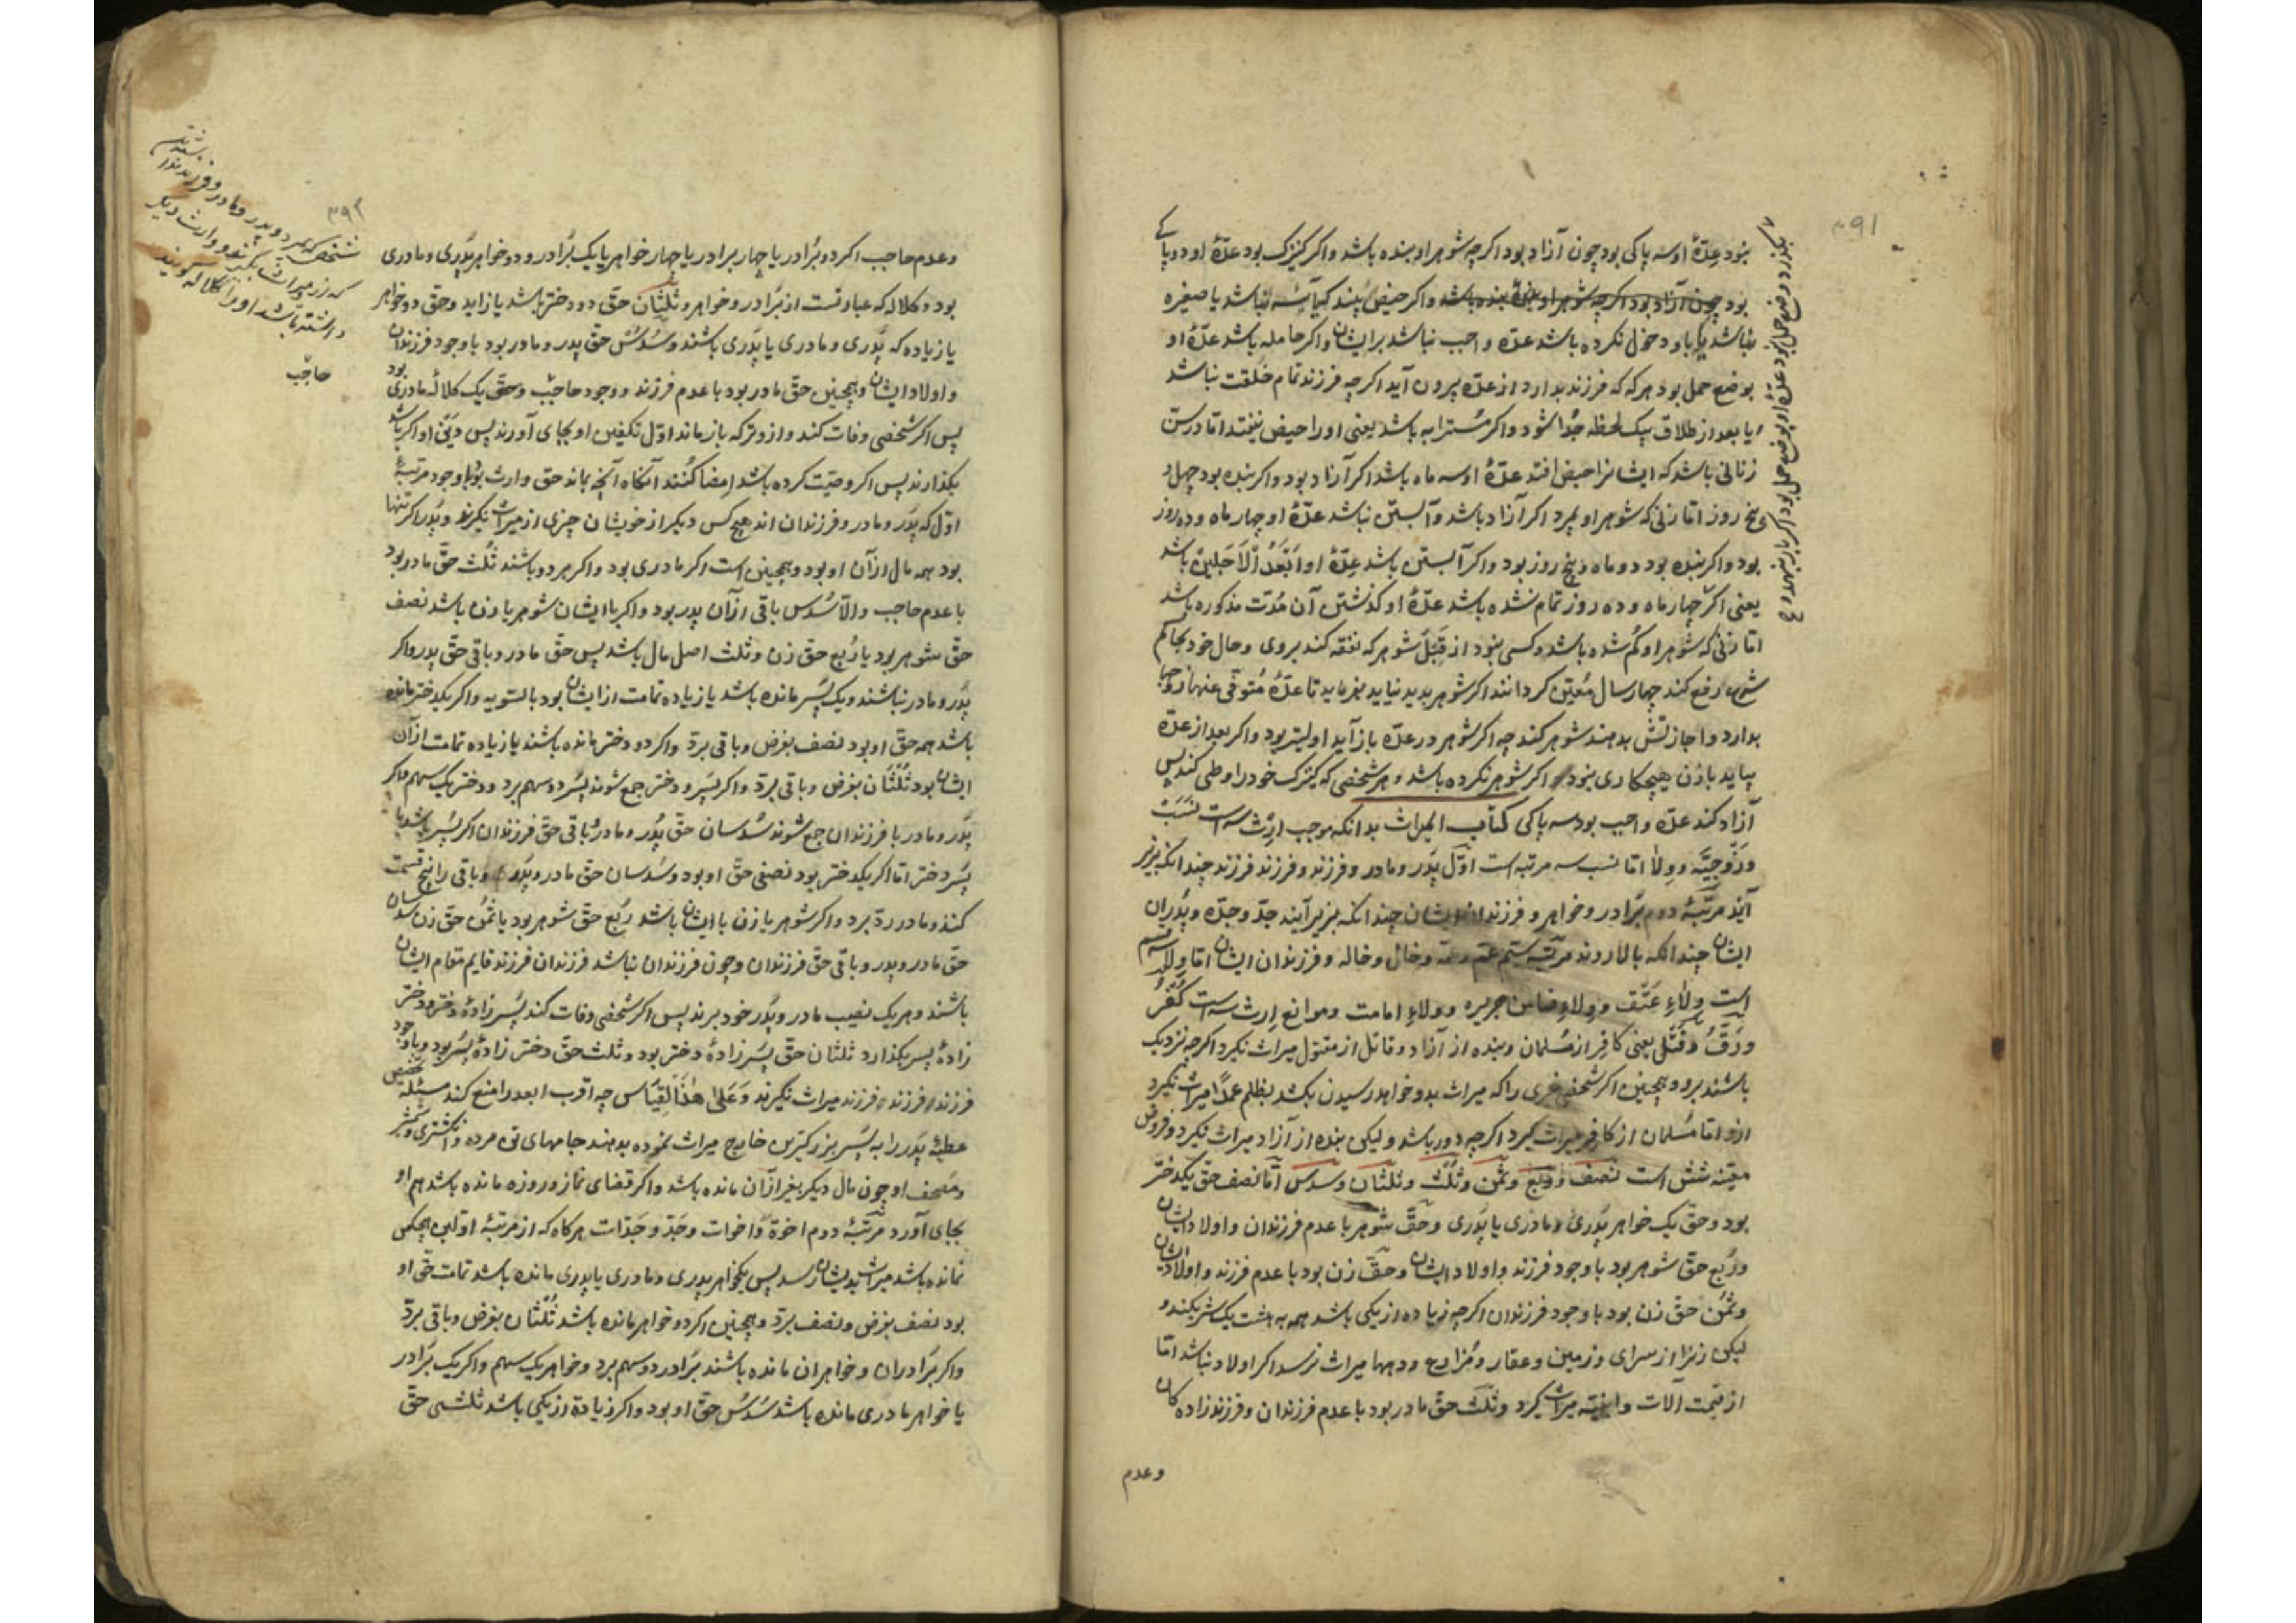 ۳۹۱
نبود عدّهٔ او سه پاکی بود چون آزاد بود اکرچه شوهر او بنده باشد واکر کنیزک بود عدّهٔ او دو پاکی
بود چون آزاد بود اکرچه شوهر او بنده باشد واکر حیض نبیند کیا آیسه نباشد یا صغیره
نباشد یا باو دخول نکرده باشد عدّه واجب نباشد بر ایشان واکر حامله باشد عدّهٔ او
بوضع حمل بود هرکه که فرزند بدارد از عدّه بیرون آید اکرچه فرزند تمام خلقت نباشد
یا بعد از طلاق بیک لحظه جدا شود واکر مسترابه باشد یعنی او را حیض نیفتد امّا در سنّ
زنانی باشد که ایشانرا حیض افتد عدّهٔ او سه ماه باشد اکر آزاد بود واکر بنده بود چهل و
پنج روز امّا زنی که شوهر او بمیرد اکر آزاد باشد وآبستن نباشد عدّهٔ او چهار ماه وده روز
بود واکر بنده بود دو ماه وپنج روز بود واکر آبستن باشد عدّهٔ او اَبْعَدُ الْاَجَلَیْن باشد
یعنی اکر چهار ماه وده روز تمام نشده باشد عدّهٔ او کذشتن آن مدّت مذکوره باشد
امّا زنی که شوهر او کم شده باشد وکسی نبود از قِبَل شوهر که نفقه کند بروی وحال خود بحاکم
شرع رفع کند چهار سال معیّن کردانند اکر شوهر پدید نیاید بفرماید تا عدّهٔ متوفّی عنها زوجها
بدارد واجازتش بدهند شوهر کند چه اکر شوهر در عدّه باز آید اولیتر بود واکر بعد از عدّه
بیاید بازن هیچکاری نبود اکر شوهر نکرده باشد وهر شخصی که کنیزک خود را وطی کند پس
آزاد کند عدّه واجب بود سه پاکی کتاب المیراث بدانکه موجب ارث سه است نسب
وزوجیّه وولا امّا نسب سه مرتبه است اوّل پدر ومادر وفرزند وفرزند فرزند چندانکه بزیر
آیند مرتبهٔ دوم برادر وخواهر وفرزندان ایشان چندانکه بزیر آیند جدّ وجدّه وپدران
ایشان چندانکه بالا روند مرتبه سیّم عم وعمّه وخال وخاله وفرزندان ایشان امّا ولا سه قسم
است ولاءِ عتق وولاءِ ضامن جریره وولاءِ امامت وموانع ارث سه است کفر
ورقّ وقتل یعنی کافر از مسلمان وبنده از آزاد وقاتل از مقتول میراث نکیرد اکرچه نزدیک
باشند برو وهمچنین اکر شخصی غری را که میراث بدو خواهد رسیدن بکشد بظلم عمداً میراث نکیرد
ازو امّا مسلمان از کافر میراث کیرد اکرچه دور باشد ولیکن بنده از آزاد میراث نکیرد وفروض
معیّنه شش است نصف وربع وثمن وثلث وثلثان وسدس امّا نصف حقّ یکدختر
بود وحقّ یک خواهر پدری ومادری یا پدری وحقّ شوهر با عدم فرزندان واولاد ایشان
وربع حقّ شوهر بود با وجود فرزند واولاد ایشان وحقّ زن بود با عدم فرزند واولاد ایشان
وثمن حقّ زن بود با وجود فرزندان اکرچه زیاده از یکی باشد همه به هشت یک شریکند و
لیکن زنرا از سرای وزمین وعقار ومزارع ودهها میراث نرسد اکر اولاد نباشد امّا
از قیمت آلات وابنیه میراث کیرد وثلث حقّ مادر بود با عدم فرزندان وفرزندزادهکان
وعدم
۳۹۲
شخصی که بمیرد وپدر ومادر وفرزند نداشته
وارث دیکر
داشته باشد او را کلاله کویند
حاجب
وعدم حاجب اکر دو برادر یا چهار برادر یا چهار خواهر یا یک برادر ودو خواهر پدری ومادری
بود وکلاله که عبارتست از برادر وخواهر وثلثان حقّ دو دختر باشد یا زاید وحقّ دو خواهر
یا زیاده که پدری ومادری یا پدری باشند وسدس حقّ پدر ومادر بود با وجود فرزندان
واولاد ایشان وهمچنین حقّ مادر بود با عدم فرزند ووجود حاجب وحقّ یک کلالهٔ مادری بود
پس اکر شخصی وفات کند وازو ترکه باز ماند اوّل تکفین او بجای آورند پس دین او اکر باشد
بکذارند پس اکر وصیّت کرده باشد امضا کنند آنکاه آنچه بماند حق وارث بود با وجود مرتبهٔ
اوّل که پدر ومادر وفرزندان اند هیچ کس دیکر از خویشان چیزی از میراث نکیرند وپدر اکر تنها
بود همه مال از آن او بود وهمچنین است اکر مادری بود واکر هر دو باشند ثلث حقّ مادر بود
با عدم حاجب والّا سدس باقی از آن پدر بود واکر با ایشان شوهر یا زن باشد نصف
حقّ شوهر بود یا ربع حق زن وثلث اصل مال باشد پس حقّ مادر وباقی حقّ پدر واکر
پدر ومادر نباشند ویک پسر مانده باشد یا زیاده تمامت از ایشان بود بالسّویه واکر یکدختر مانده
باشد همه حقّ او بود نصف بفرض وباقی بردّ واکر دو دختر مانده باشند یا زیاده تمامت از آن
ایشان بود ثلثان بفرض وباقی بردّ واکر پسر ودختر جمع شوند پسر دو سهم برد ودختر یک سهم واکر
پدر ومادر با فرزندان جمع شوند سدسان حقّ پدر ومادر وباقی حقّ فرزندان اکر پسر باشد یا
پسر دختر امّا اکر یکدختر بود نصفی حقّ او بود وسدسان حقّ مادر وپدر وباقی را پنج قسمت
کنند ومادر ردّ برد واکر شوهر یا زن با ایشان باشد ربع حقّ شوهر بود یا ثمن حقّ زن سدسان
حقّ مادر وپدر وباقی حقّ فرزندان وچون فرزندان نباشد فرزندان فرزند قایم مقام ایشان
باشند وهر یک نصیب مادر وپدر خود برند پس اکر شخصی وفات کند پسر زادهٔ دختر ودختر
زادهٔ پسر بکذارد ثلثان حقّ پسر زادهٔ دختر بود وثلث حقّ دختر زادهٔ پسر بود وبا وجود
فرزند فرزند فرزند میراث نکیرند وَعَلی هٰذَا الْقِیَاس چه اقرب ابعد را منع کند مسئله تخصیص
عطیّهٔ پدر را به پسر بزرکترین خارج میراث نموده بدهند جامهای تن مرده وانکشتری وشمشیر
ومصحف او چون مال دیکر بغیر از آن مانده باشد واکر قضای نماز وروزه مانده باشد هم او
بجای آورد مرتبهٔ دوم اخوة واخوات وجدّ وجدّات هرکاه که از مرتبهٔ اوّلین هیچکس
نمانده باشد میراث بدیشان رسد پس یکخواهر پدری ومادری یا پدری مانده باشد تمامت حقّ او
بود نصف بفرض ونصف بردّ وهمچنین اکر دو خواهر مانده باشد ثلثان بفرض وباقی بردّ
واکر برادران وخواهران مانده باشند برادر دو سهم برد وخواهر یک سهم واکر یک برادر
یا خواهر مادری مانده باشد سدس حقّ او بود واکر زیادة از یکی باشد ثلثی حقّ